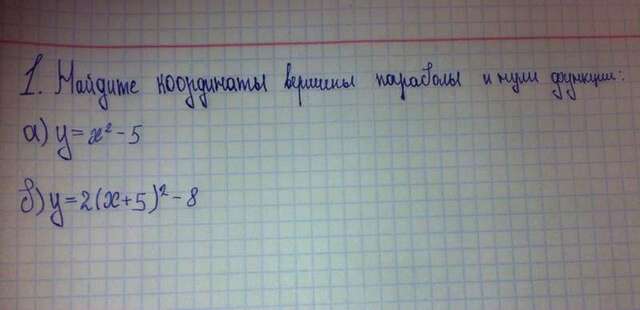 1. Найдите координаты вершины параболы и нули функции:
а) y = x² - 5
б) y = 2(x+5)² - 8